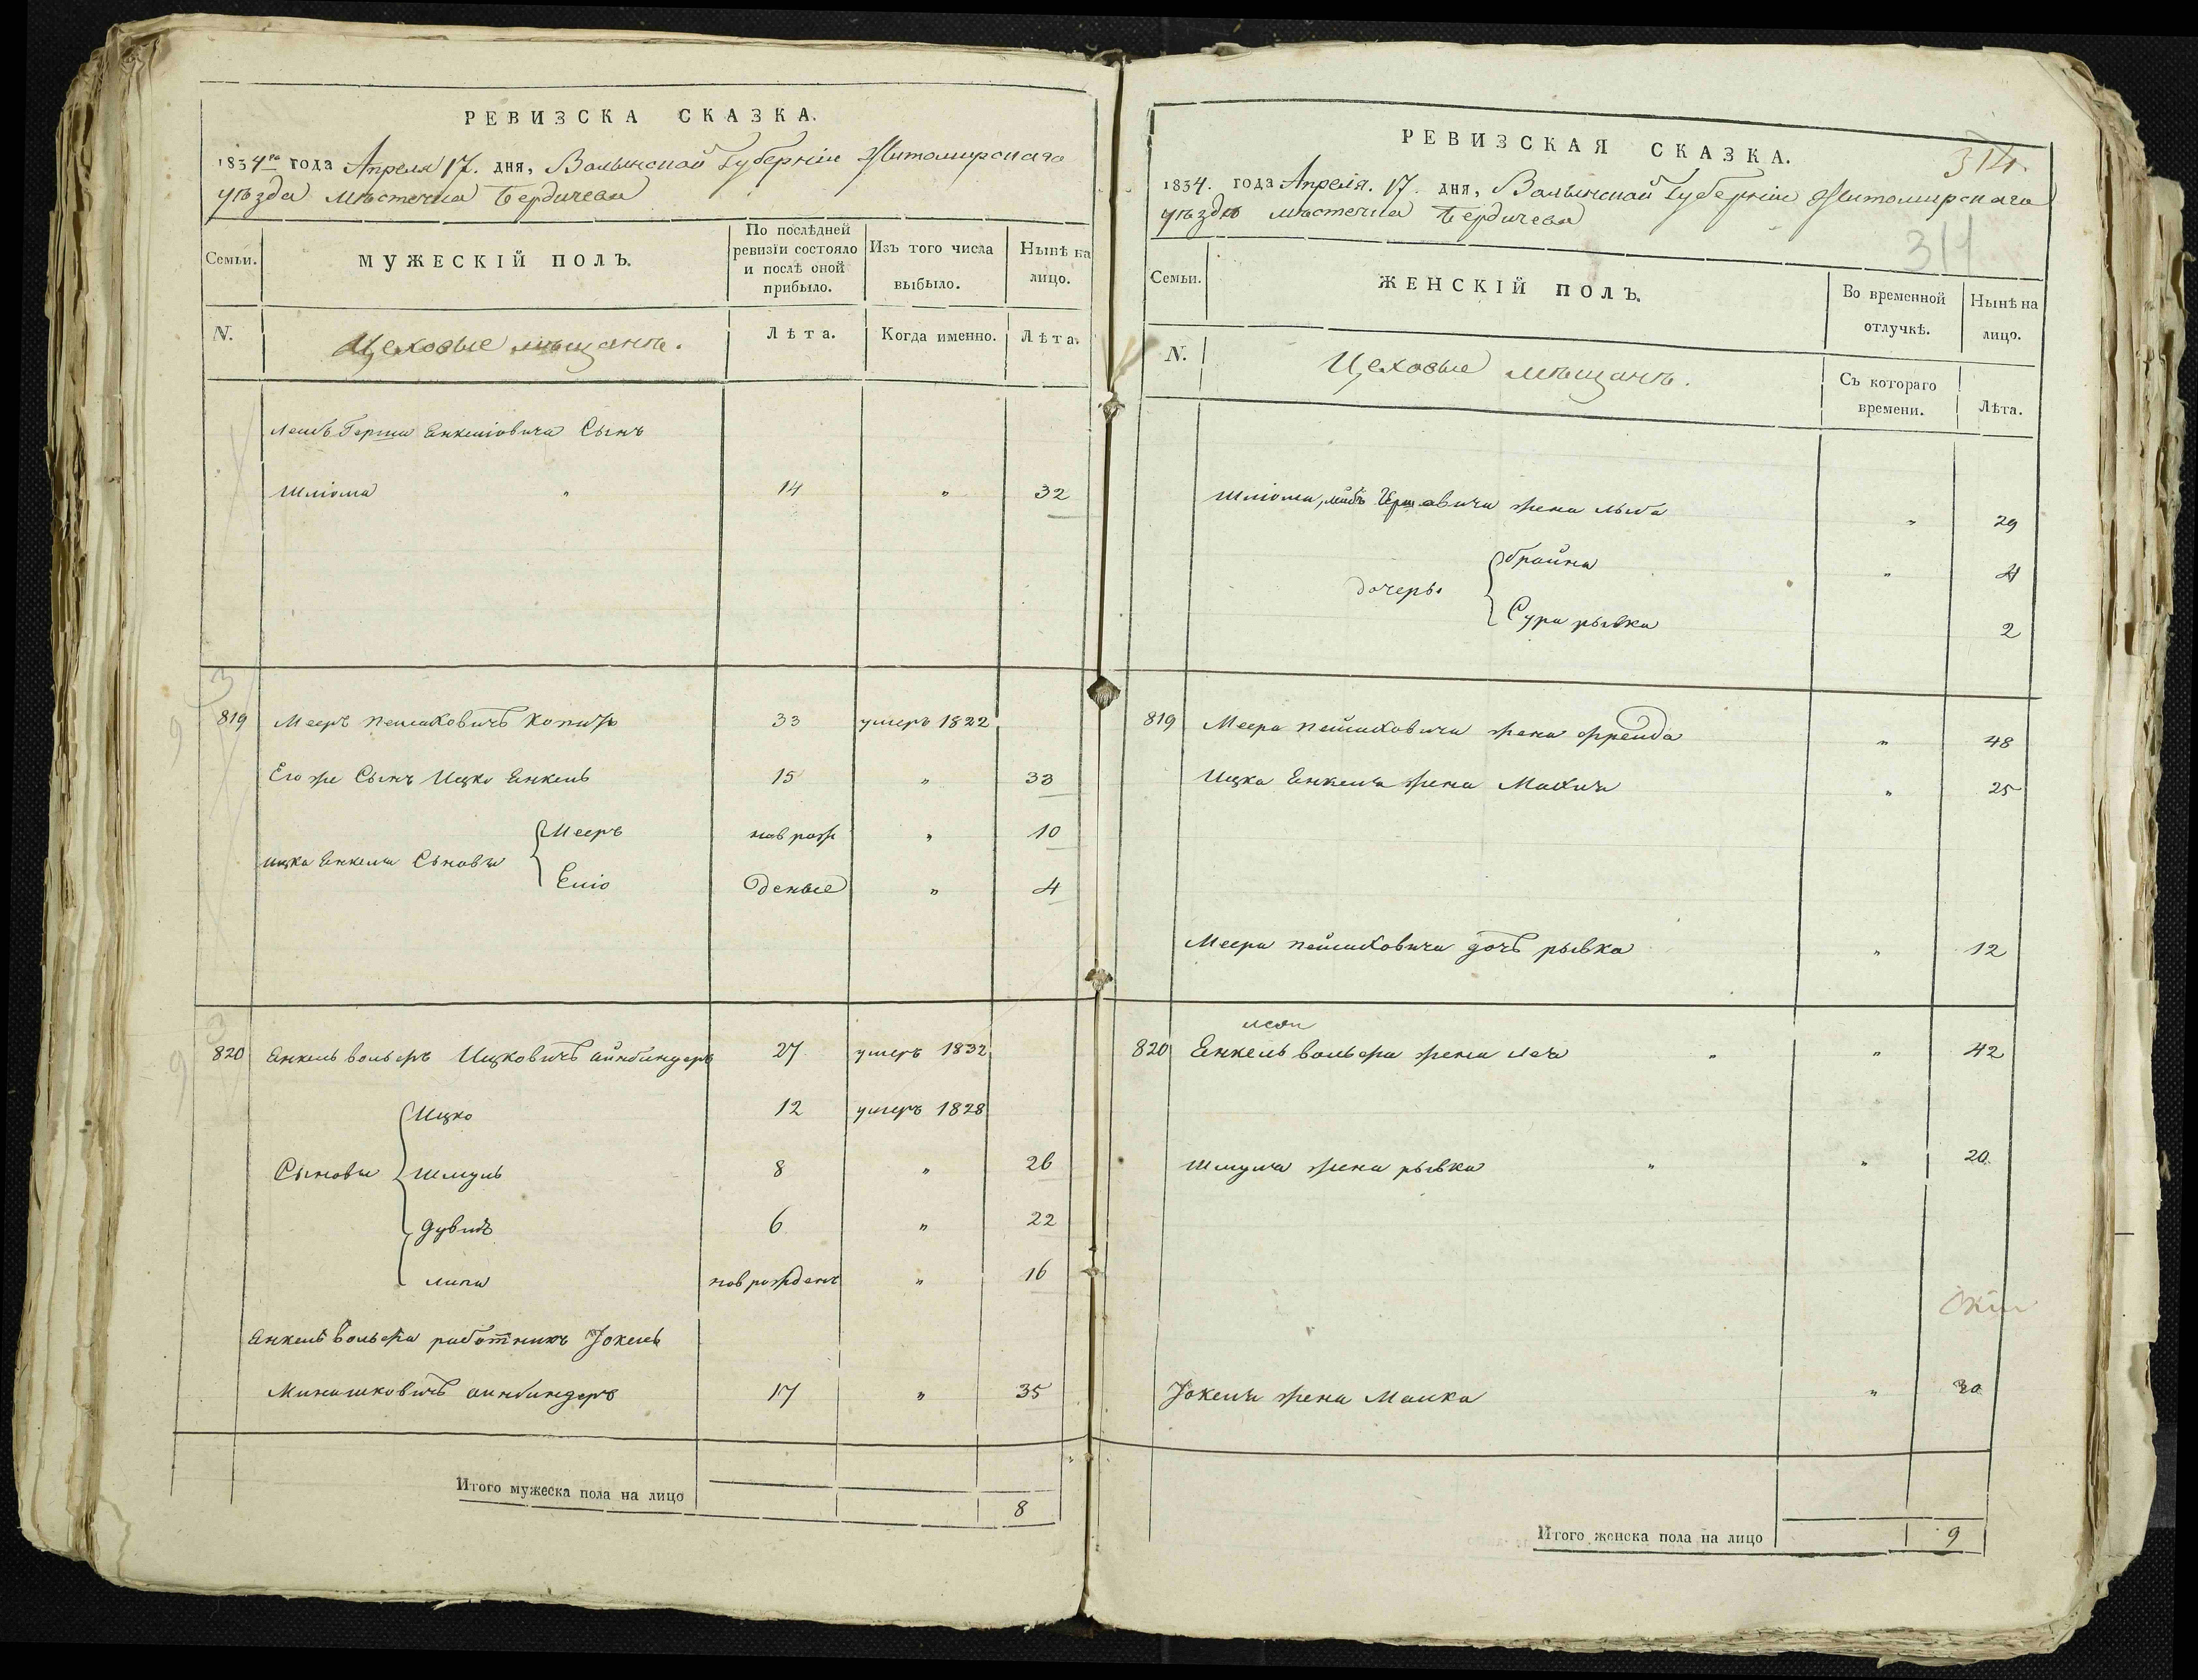 РЕВИЗСКА СКАЗКА.
1834го года Апреля 17. дня, Волынской Губерніи Житомирскаго
уѣзда мѣстечка Бердичева
Семьи.
МУЖЕСКІЙ ПОЛЪ.
По послѣдней ревизіи состояло и послѣ оной прибыло.
Изъ того числа выбыло.
Нынѣ на лицо.
N.
Цеховые мѣщанѣ.
Лѣта.
Когда именно.
Лѣта.
Герша Сынъ
Шліома " 14 " 32
819 Мееръ Пейсаковичъ 33 умеръ 1822
Его же Сынъ Ицко Енкель 15 " 33
Ицка Енкеля Сыновя
Мееръ новрож " 10
Еліо деные " 4
820 Енкель Вольфъ Ицковичъ айнбиндеръ 27 умеръ 1832
Сыновя
Ицко 12 умеръ 1828
Шмуль 8 " 26
Дувидъ 6 " 22
Липа новрожденъ " 16
Енкель Вольфа работникъ Іокель
Минашковичъ аинбиндеръ 17 " 35
Итого мужеска пола на лицо 8
РЕВИЗСКАЯ СКАЗКА.
314.
1834. года Апреля. 17. дня, Волынской Губерніи Житомирскаго
уѣзда мѣстечка Бердичева
314
Семьи.
ЖЕНСКІЙ ПОЛЪ.
Во временной отлучкѣ.
Нынѣ на лицо.
N.
Цеховые мѣщанѣ.
Съ котораго времени.
Лѣта.
Шліома жена " 29
дочеры
брайна " 4
Сура рывка 2
819 Меера Пейсаковича жена фрейда " 48
Ицка Енкеля жена " 25
Меера Пейсаковича дочь рывка " 12
820 Енкель Вольфа жена лея " " 42
Шмуля жена рывка " " 20
Іокеля жена Малка " 30
Итого женска пола на лицо 9